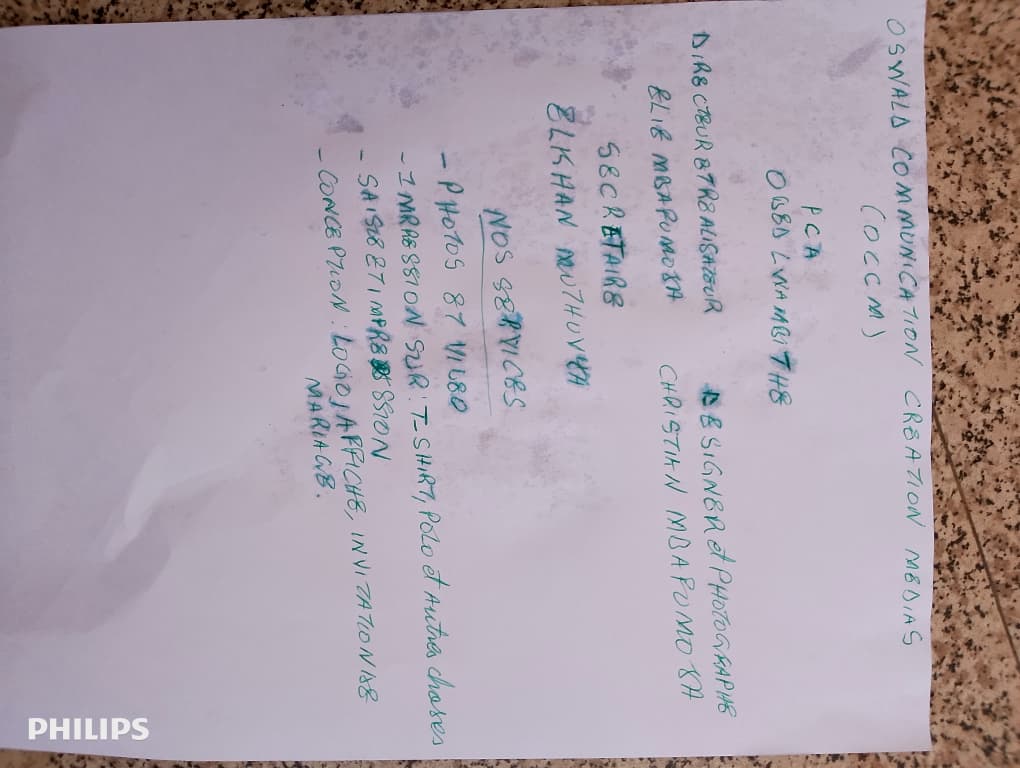 OSWALD COMMUNICATION CREATION MEDIAS
(OCCM)
PCA
OBED LWAMBITHE
DIRECTEUR ET REALISATEUR
DESIGNER et PHOTOGRAPHE
ELIE MBAFUMOJA
CHRISTIAN MBAFUMOJA
SECRETAIRE
ELKHAN MUTHUVYA
NOS SERVICES
- PHOTOS ET VIDEO
- IMPRESSION SUR : T-SHIRT, POLO et Autres choses
- SAISIE ET IMPRESSION
- CONCEPTION : LOGO, AFFICHE, INVITATION DE
MARIAGE.
PHILIPS